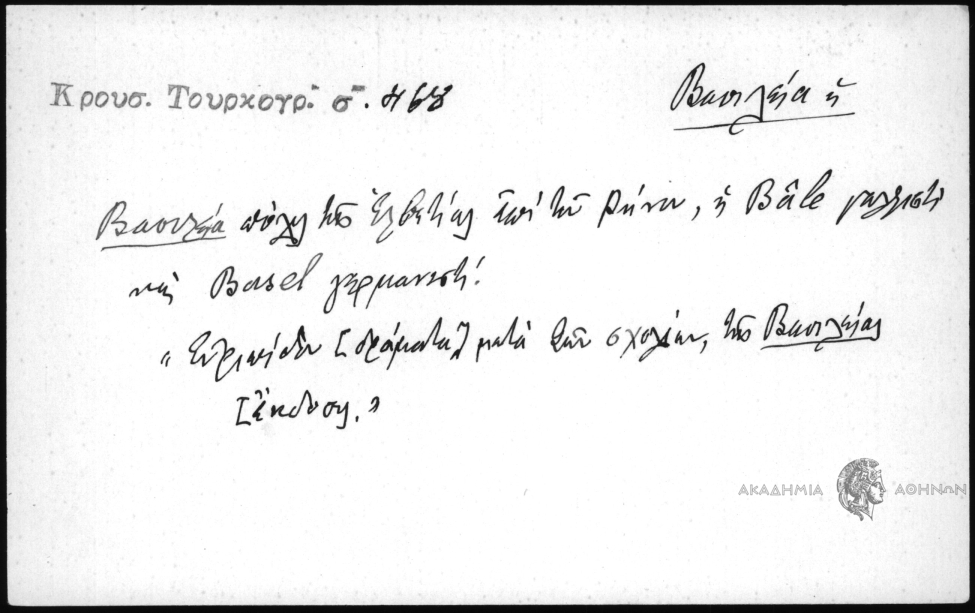 Κρουσ. Τουρκογρ. σ. 468
Βασιλεία ἡ
Βασιλεία πόλις τῆς Ἑλβετίας ἐπὶ τοῦ Ρήνου, ἡ Bâle γαλλιστὶ
καὶ Basel γερμανιστί.
"Εὐριπίδου [δράματα] μετὰ τῶν σχολίων, τῆς Βασιλείας
[ἔκδοσις."
ΑΚΑΔΗΜΙΑ ΑΘΗΝΩΝ